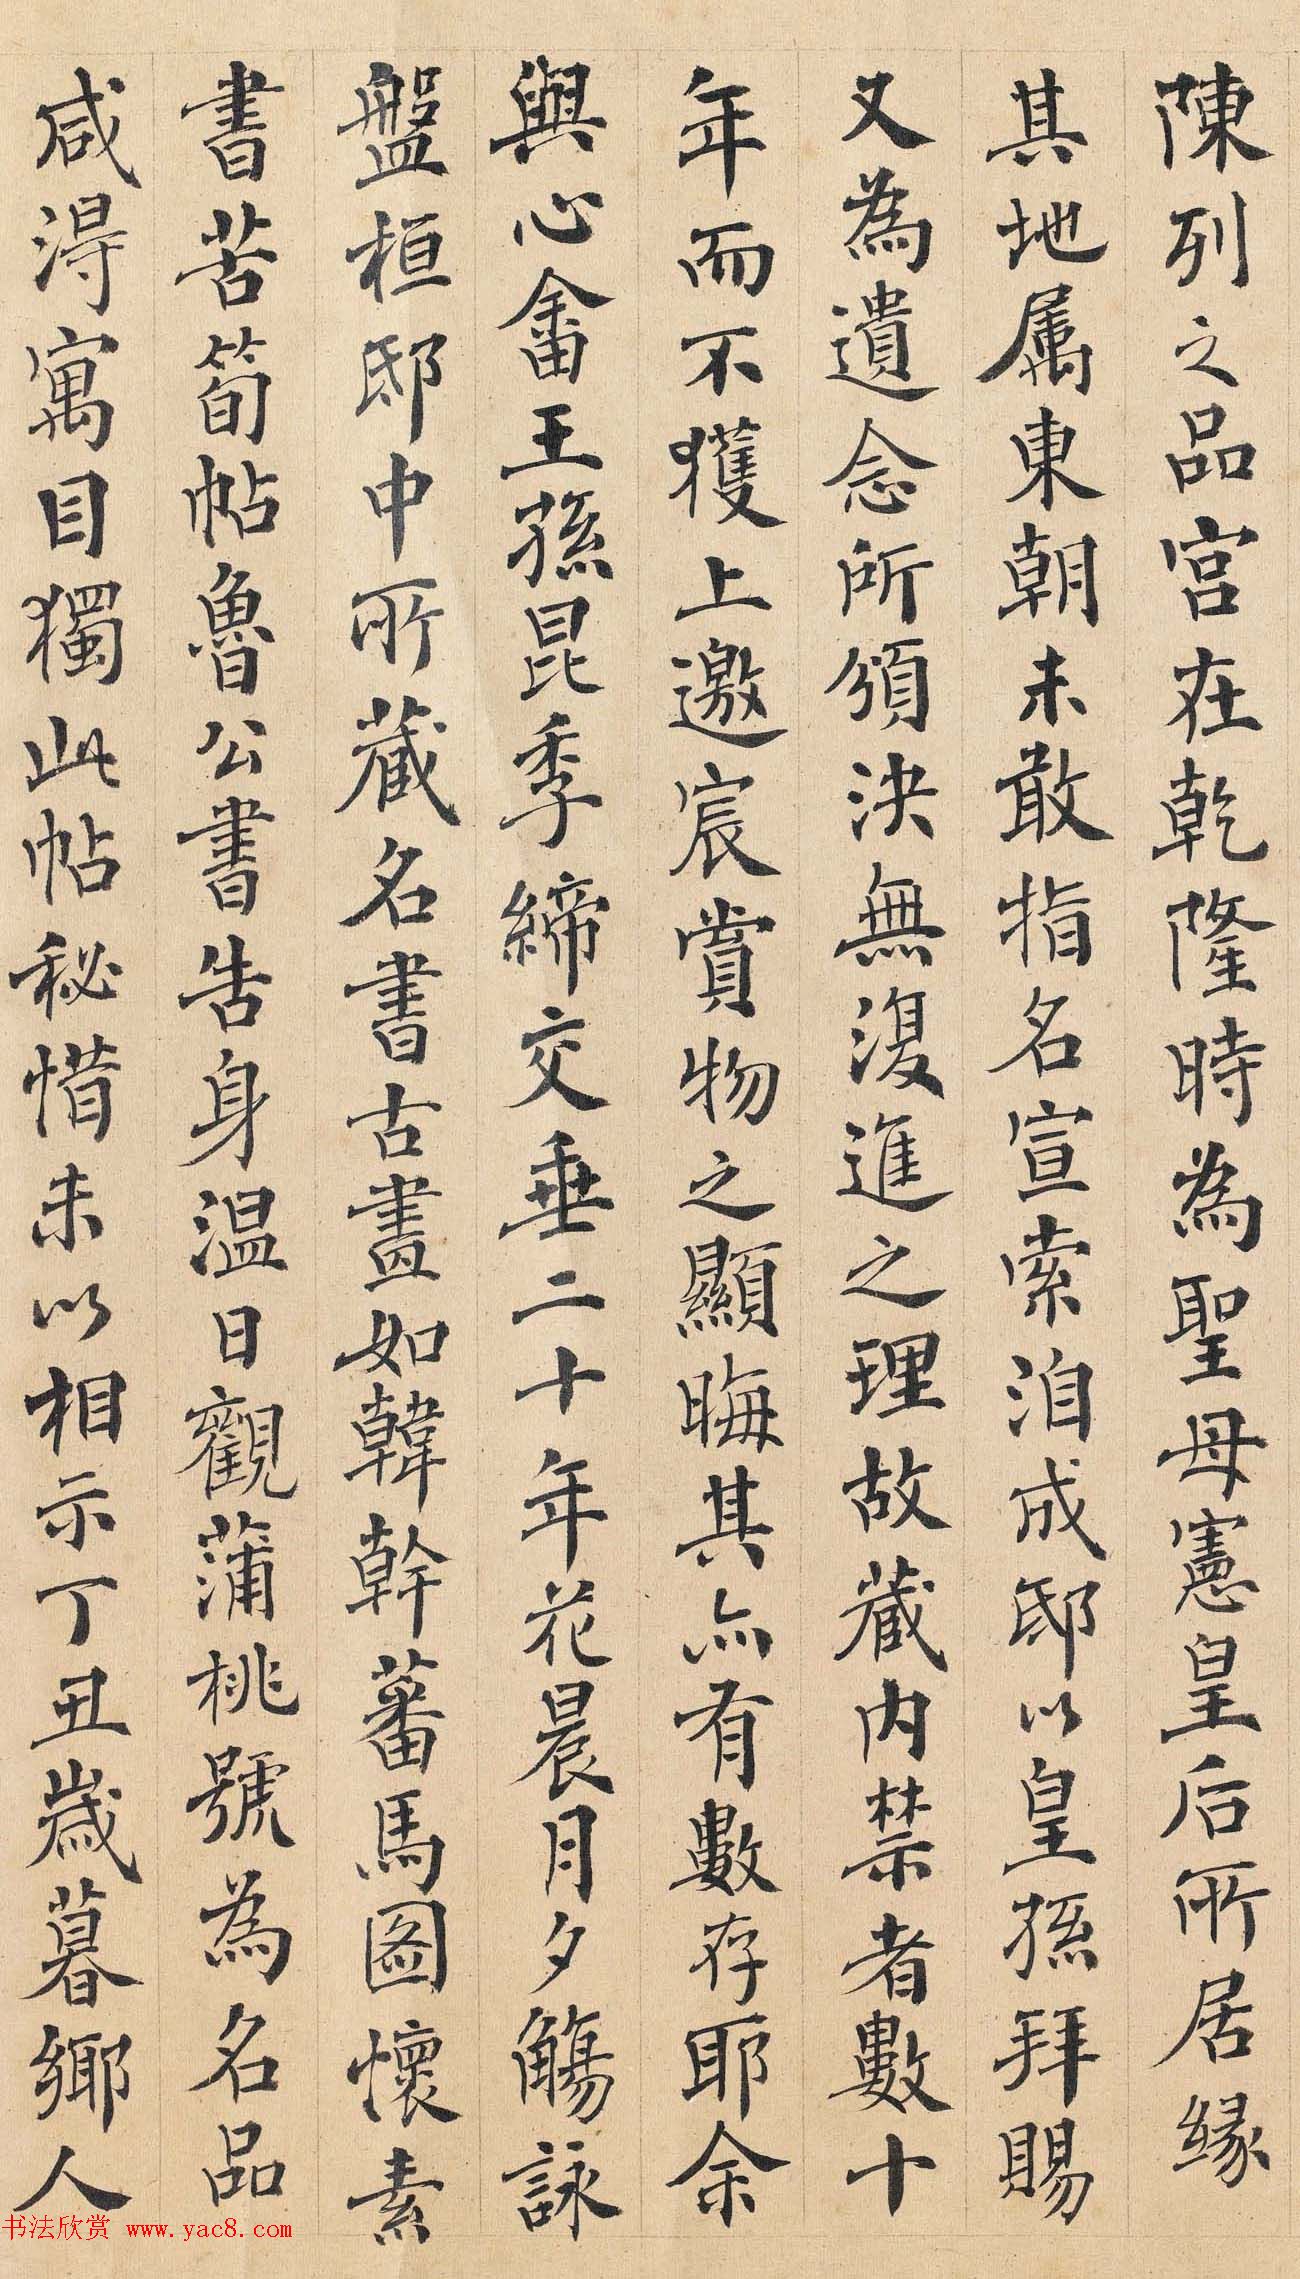 陳列之品宮在乾隆時為聖母憲皇后所居緣
其地属東朝未敢指名宣索洎成邸以皇孫拜賜
又為遺念所頒決無復進之理故藏内禁者數十
年而不獲上邀宸賞物之顯晦其亦有數存耶余
與心畬王孫昆季締交垂二十年花晨月夕觴詠
盤桓邸中所藏名書古畫如韓幹蕃馬圖懷素
書苦筍帖魯公書告身溫日觀蒲桃號為名品
咸得寓目獨此帖秘惜未以相示丁丑歲暮鄉人
书法欣赏 www.yac8.com